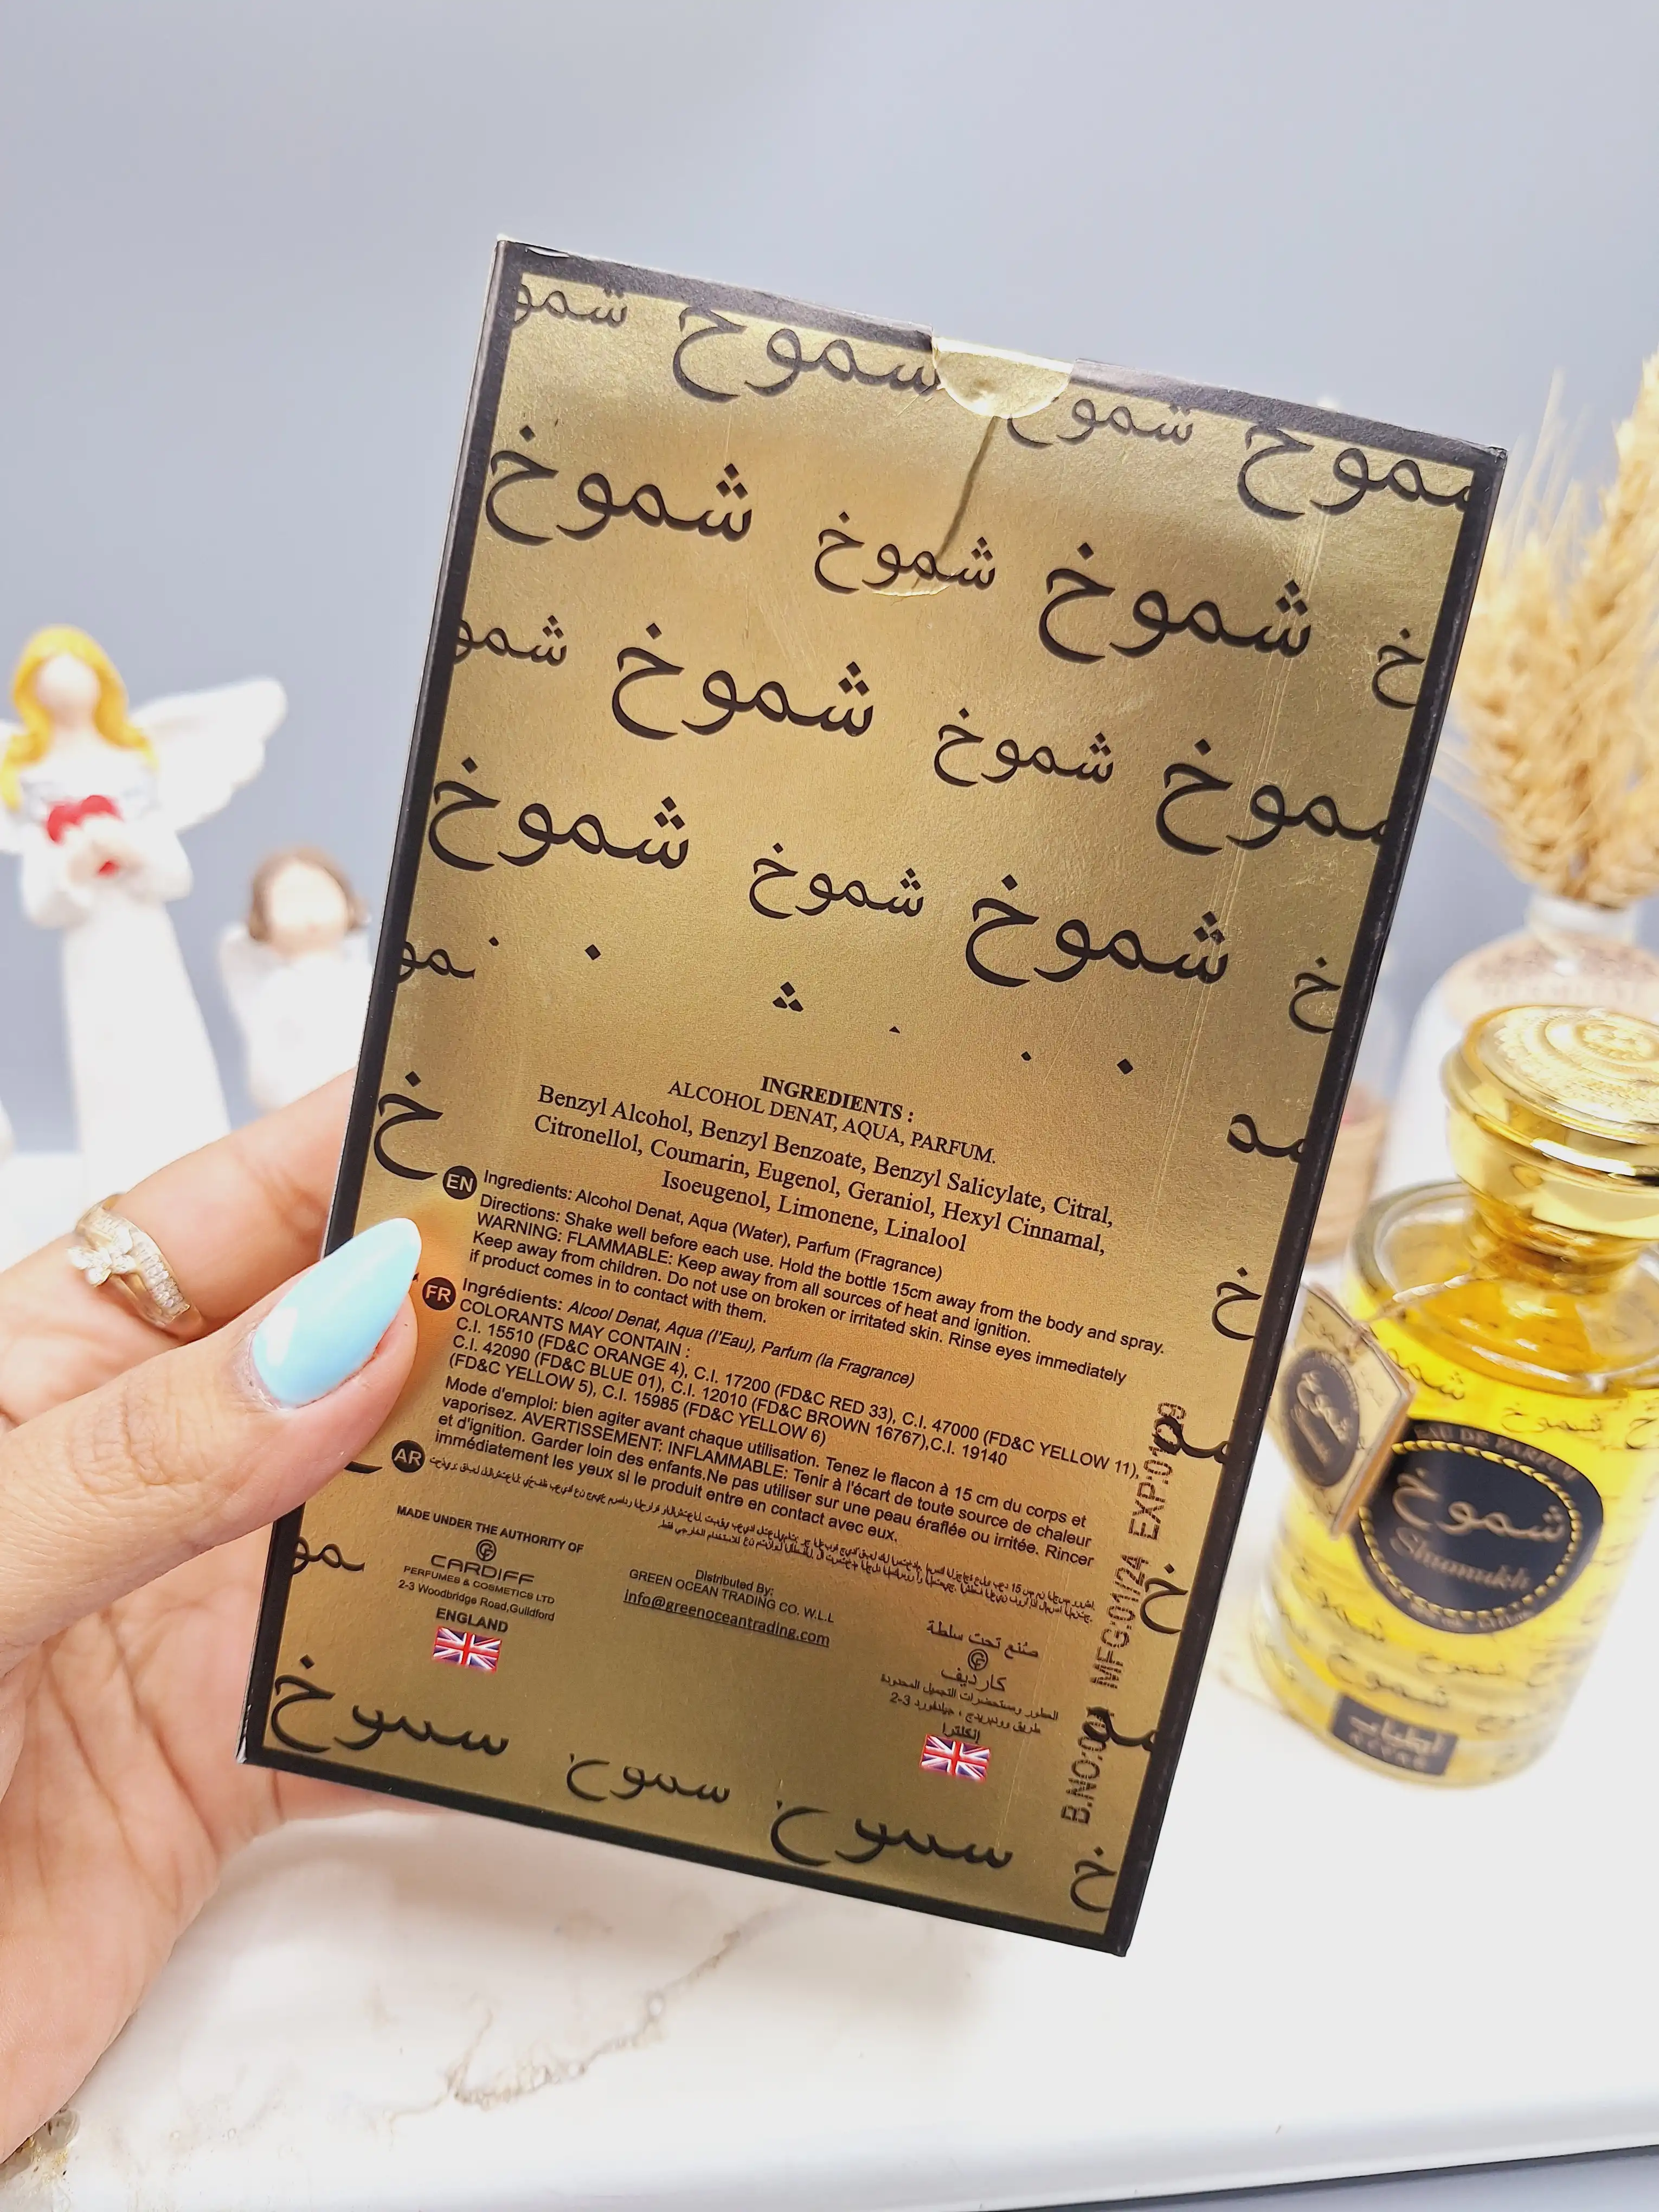 شمو شموخ شموخ شموخ
شموخ شموخ شموخ خ
شمو شموخ شموخ شموخ
شموخ شموخ شموخ خ
INGREDIENTS :
ALCOHOL DENAT, AQUA, PARFUM.
Benzyl Alcohol, Benzyl Benzoate, Benzyl Salicylate, Citral,
Citronellol, Coumarin, Eugenol, Geraniol, Hexyl Cinnamal,
Isoeugenol, Limonene, Linalool
EN Ingredients: Alcohol Denat, Aqua (Water), Parfum (Fragrance)
Directions: Shake well before each use. Hold the bottle 15cm away from the body and spray.
WARNING: FLAMMABLE: Keep away from all sources of heat and ignition.
Keep away from children. Do not use on broken or irritated skin. Rinse eyes immediately
if product comes in to contact with them.
FR Ingrédients: Alcool Denat, Aqua (l'Eau), Parfum (la Fragrance)
COLORANTS MAY CONTAIN :
C.I. 15510 (FD&C ORANGE 4), C.I. 17200 (FD&C RED 33), C.I. 47000 (FD&C YELLOW 11),
C.I. 42090 (FD&C BLUE 01), C.I. 12010 (FD&C BROWN 16767),C.I. 19140
(FD&C YELLOW 5), C.I. 15985 (FD&C YELLOW 6)
Mode d'emploi: bien agiter avant chaque utilisation. Tenez le flacon à 15 cm du corps et
vaporisez. AVERTISSEMENT: INFLAMMABLE: Tenir à l'écart de toute source de chaleur
et d'ignition. Garder loin des enfants.Ne pas utiliser sur une peau éraflée ou irritée. Rincer
immédiatement les yeux si le produit entre en contact avec eux.
AR
MADE UNDER THE AUTHORITY OF
CARDIFF
PERFUMES & COSMETICS LTD
2-3 Woodbridge Road,Guildford
ENGLAND
Distributed By:
GREEN OCEAN TRADING CO. W.L.L
info@greenoceantrading.com
صنع تحت سلطة
كارديف
العطور ومستحضرات التجميل المحدودة
2-3 طريق وودبريدج ، جيلدفورد
إنكلترا
B.NO: MFG:01/24 EXP:01/29
EAU DE PARFUM
شموخ
Shumukh